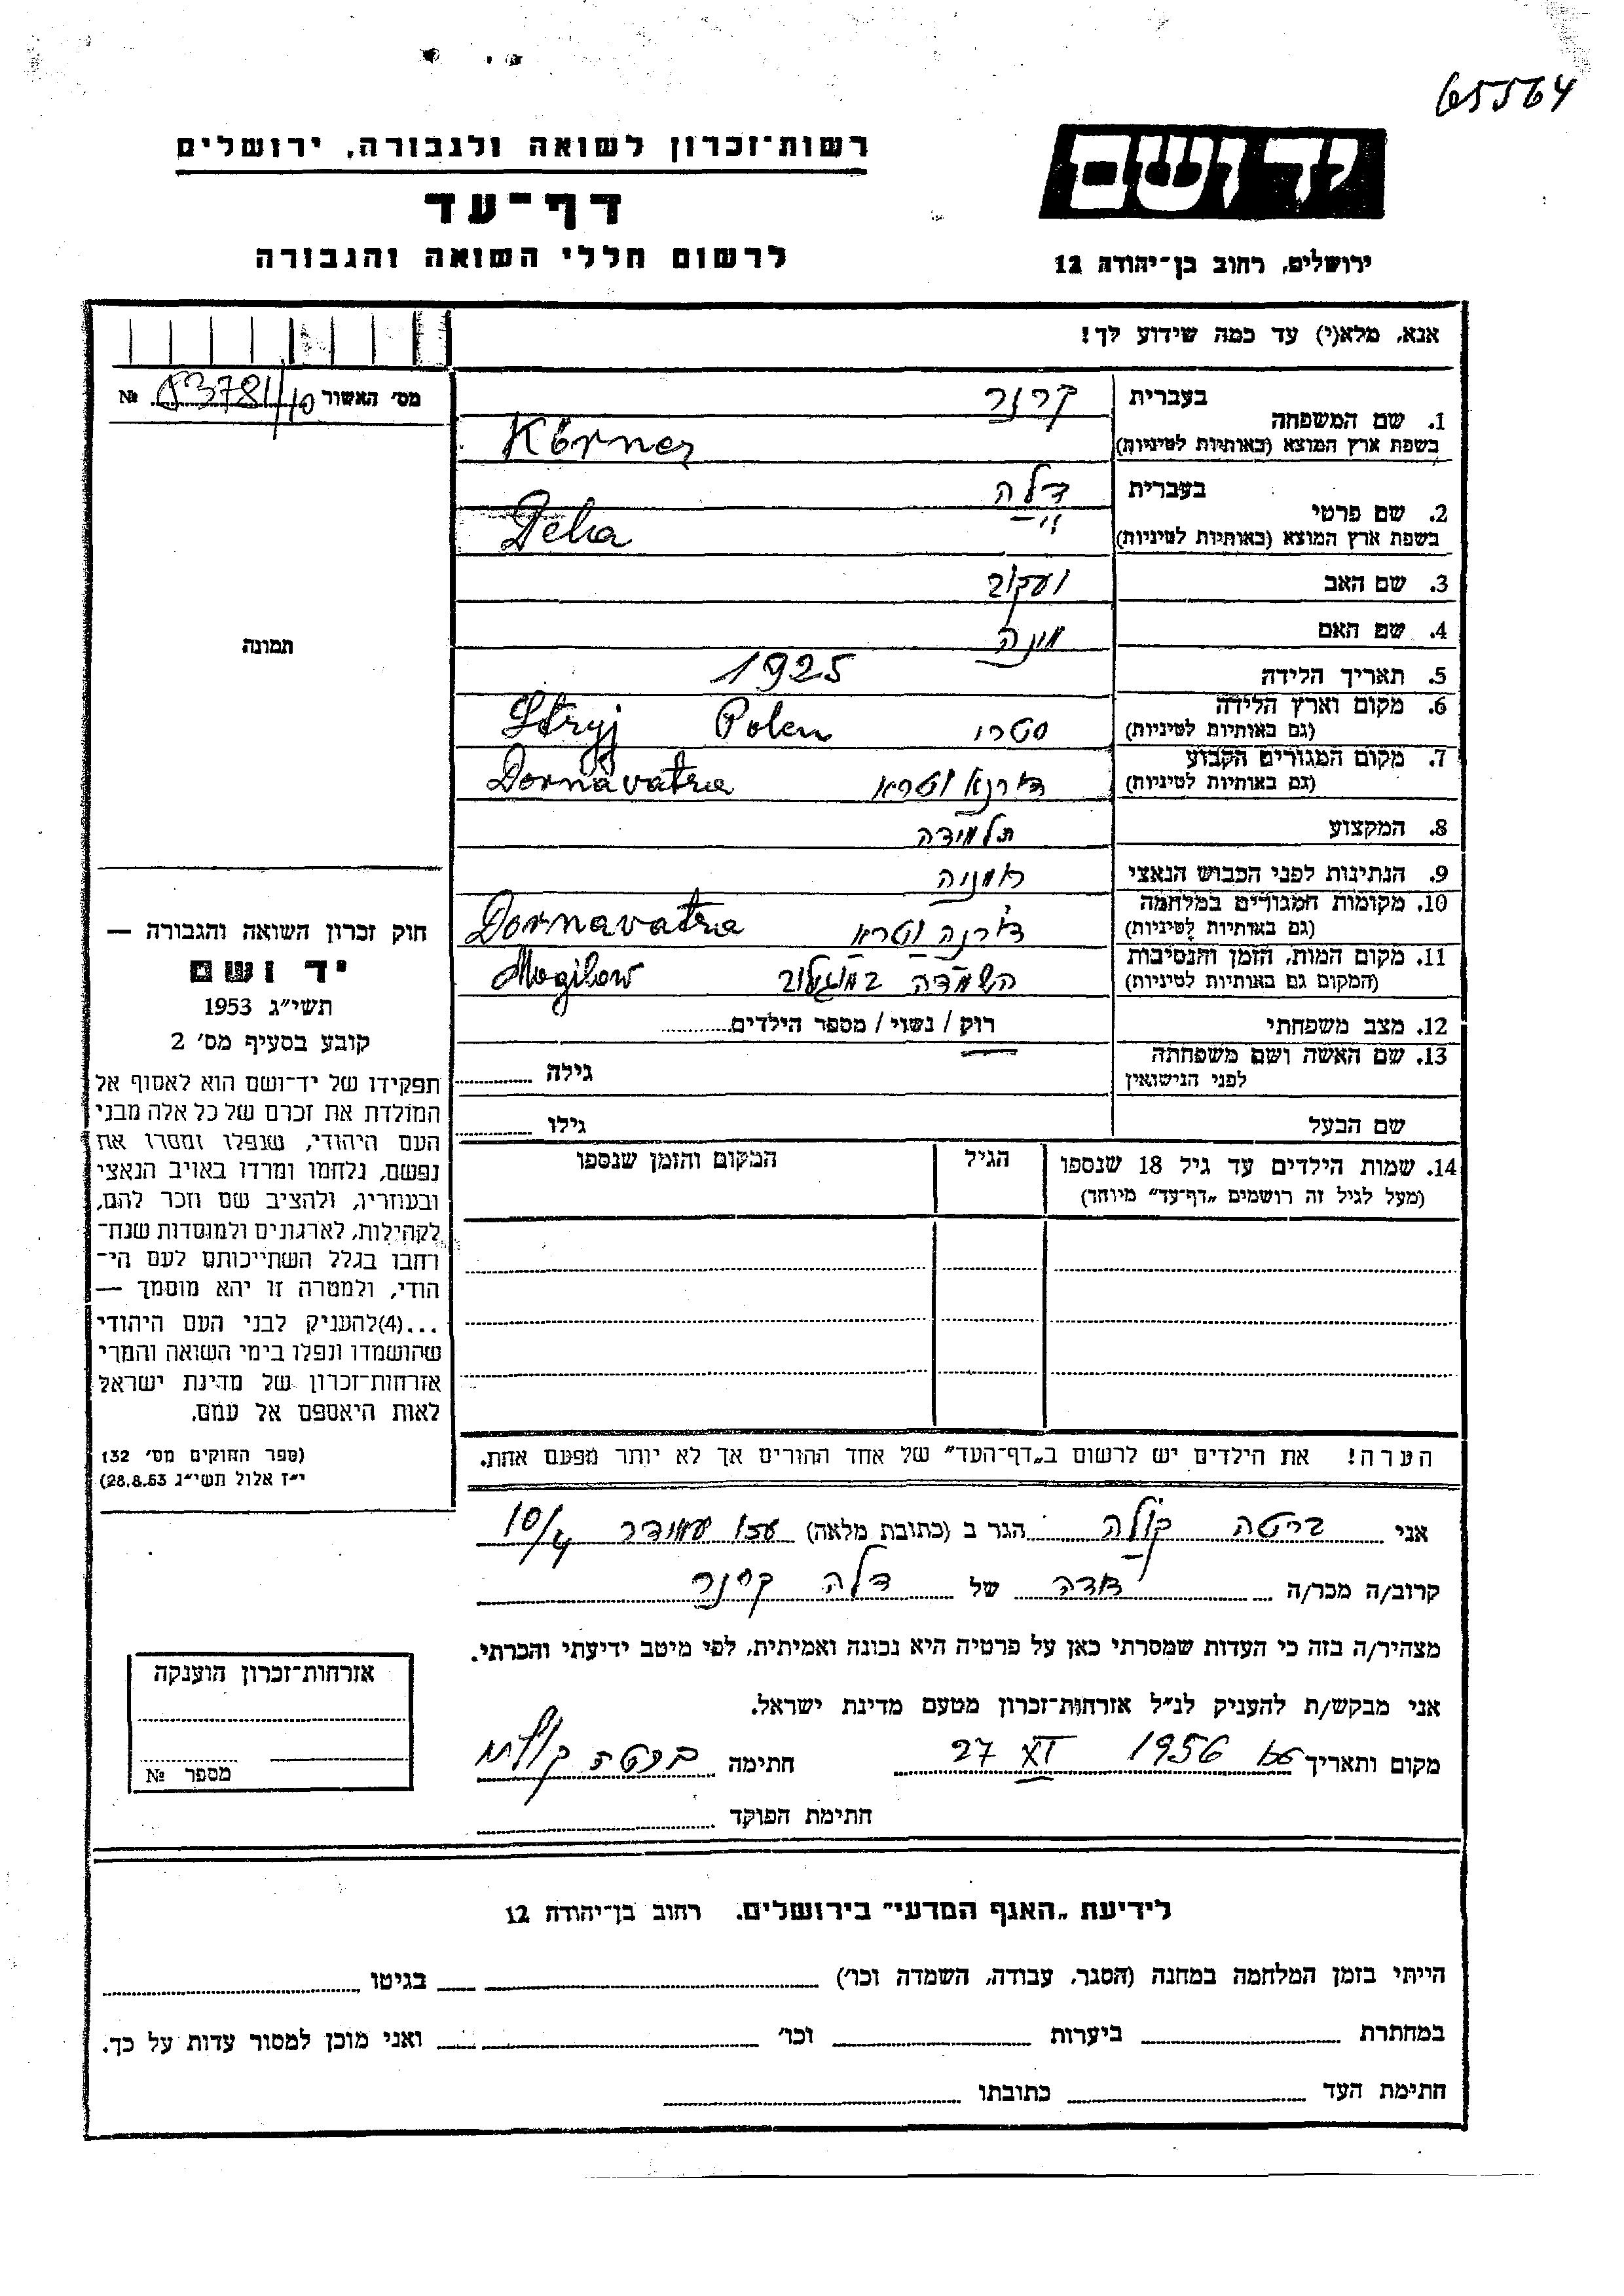 65564
רשות־זכרון לשואה ולגבורה, ירושלים
דף־עד
לרשום חללי השואה והגבורה
יד ושם
ירושלים, רחוב בן־יהודה 12
אנא, מלא(י) עד כמה שידוע לך!
מס' האשור 83781/10 №
1. שם המשפחה בעברית קרנר
בשפת ארץ המוצא (באותיות לטיניות) Körner
2. שם פרטי בעברית דלה
בשפת ארץ המוצא (באותיות לטיניות) Dela
3. שם האב יעקוב
4. שם האם
5. תאריך הלידה 1925
6. מקום וארץ הלידה
(גם באותיות לטיניות) סטרי Stryj Polen
7. מקום המגורים הקבוע
(גם באותיות לטיניות) דורנא וטרא Dornavatra
8. המקצוע תלמידה
9. הנתינות לפני הכבוש הנאצי
10. מקומות המגורים במלחמה
(גם באותיות לטיניות) דורנה וטרא Dornavatra
11. מקום המות, הזמן והנסיבות
(המקום גם באותיות לטיניות) השמדה במוגילוב Mogilow
12. מצב משפחתי רוק / נשוי / מספר הילדים
13. שם האשה ושם משפחתה
לפני הנישואין גילה
שם הבעל גילו
14. שמות הילדים עד גיל 18 שנספו הגיל המקום והזמן שנספו
(מעל לגיל זה רושמים „דף־עד" מיוחד)
הערה! את הילדים יש לרשום ב„דף־העד" של אחד ההורים אך לא יותר מפעם אחת.
תמונה
חוק זכרון השואה והגבורה —
יד ושם
תשי״ג 1953
קובע בסעיף מס' 2
תפקידו של יד־ושם הוא לאסוף אל
המולדת את זכרם של כל אלה מבני
העם היהודי, שנפלו ומסרו את
נפשם, נלחמו ומרדו באויב הנאצי
ובעוזריו, ולהציב שם וזכר להם,
לקהילות, לארגונים ולמוסדות שנח־
רחבו בגלל השתייכותם לעם הי־
הודי, ולמטרה זו יהא מוסמך —
...(4)להעניק לבני העם היהודי
שהושמדו ונפלו בימי השואה והמרי
אזרחות־זכרון של מדינת ישראל
לאות היאספם אל עמם.
(ספר החוקים מס' 132
י״ז אלול תשי״ג 28.8.53)
אני ברטה קולה הגר ב (כתובת מלאה) 10/4
קרוב/ה מכר/ה דודה של דלה קרנר
מצהיר/ה בזה כי העדות שמסרתי כאן על פרטיה היא נכונה ואמיתית, לפי מיטב ידיעתי והכרתי.
אני מבקש/ת להעניק לנ״ל אזרחות־זכרון מטעם מדינת ישראל.
מקום ותאריך 27 XI 1956 חתימה
חתימת הפוקד
אזרחות־זכרון הוענקה
מספר №
לידיעת „האגף המדעי" בירושלים. רחוב בן־יהודה 12
הייתי בזמן המלחמה במחנה (הסגר, עבודה, השמדה וכו') בגיטו
במחתרת ביערות וכו' ואני מוכן למסור עדות על כך.
חתימת העד כתובתו